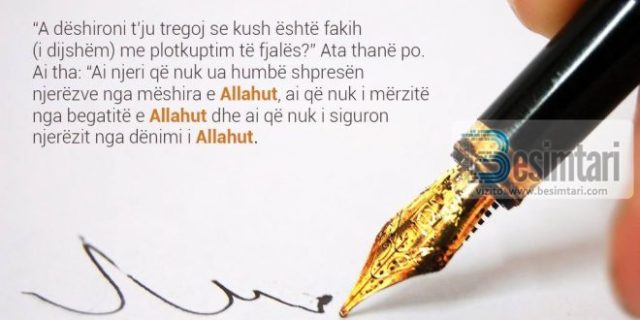 “A dëshironi t’ju tregoj se kush është fakih
(i dijshëm) me plotkuptim të fjalës?” Ata thanë po.
Ai tha: “Ai njeri që nuk ua humbë shpresën
njerëzve nga mëshira e Allahut, ai që nuk i mërzitë
nga begatitë e Allahut dhe ai që nuk i siguron
njerëzit nga dënimi i Allahut.
Besimtari
vizito: www.besimtari.com